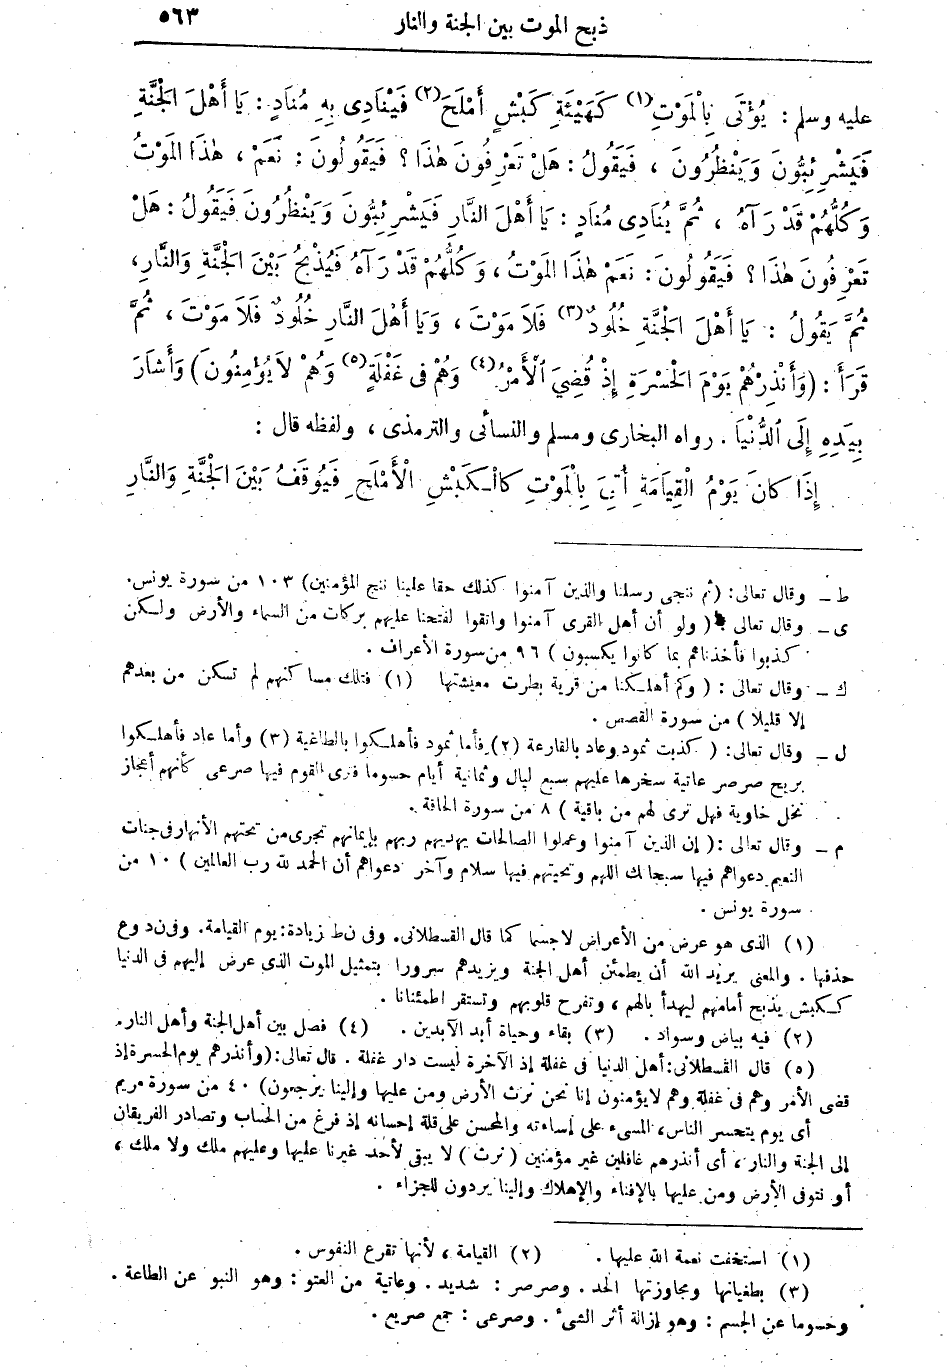 ذبح الموت بين الجنة والنار ٥٦٣
عليه وسلم : يُؤْتَى بِالْمَوْتِ (١) كَهَيْئَةِ كَبْشٍ أَمْلَحَ (٢) فَيُنَادِى بِهِ مُنَادٍ : يَا أَهْلَ الْجَنَّةِ
فَيَشْرَئِبُّونَ وَيَنْظُرُونَ ، فَيَقُولُ : هَلْ تَعْرِفُونَ هٰذَا ؟ فَيَقُولُونَ : نَعَمْ ، هٰذَا الْمَوْتُ
وَكُلُّهُمْ قَدْ رَآهُ ، ثُمَّ يُنَادِى مُنَادٍ : يَا أَهْلَ النَّارِ فَيَشْرَئِبُّونَ وَيَنْظُرُونَ فَيَقُولُ : هَلْ
تَعْرِفُونَ هٰذَا ؟ فَيَقُولُونَ : نَعَمْ هٰذَا الْمَوْتُ ، وَكُلُّهُمْ قَدْ رَآهُ فَيُذْبَحُ بَيْنَ الْجَنَّةِ وَالنَّارِ ،
ثُمَّ يَقُولُ : يَا أَهْلَ الْجَنَّةِ خُلُودٌ (٣) فَلَا مَوْتَ ، وَيَا أَهْلَ النَّارِ خُلُودٌ فَلَا مَوْتَ ، ثُمَّ
قَرَأَ : (وَأَنْذِرْهُمْ يَوْمَ الْحَسْرَةِ إِذْ قُضِيَ الْأَمْرُ (٤) وَهُمْ فِى غَفْلَةٍ (٥) وَهُمْ لَا يُؤْمِنُونَ) وَأَشَارَ
بِيَدِهِ إِلَى الدُّنْيَا . رواه البخارى ومسلم والنسائى والترمذى ، ولفظه قال :
إِذَا كَانَ يَوْمُ الْقِيَامَةِ أُتِىَ بِالْمَوْتِ كَالْكَبْشِ الْأَمْلَحِ فَيُوقَفُ بَيْنَ الْجَنَّةِ وَالنَّارِ
ط ــ وقال تعالى : (ثم ننجى رسلنا والذين آمنوا كذلك حقا علينا ننج المؤمنين) ١٠٣ من سورة يونس.
ى ــ وقال تعالى : ( ولو أن أهل القرى آمنوا واتقوا لفتحنا عليهم بركات من السماء والأرض ولكن
كذبوا فأخذناهم بما كانوا يكسبون ) ٩٦ من سورة الأعراف .
ك ــ وقال تعالى : ( وكم أهلكنا من قرية بطرت معيشتها (١) فتلك مساكنهم لم تسكن من بعدهم
إلا قليلا ) من سورة القصص .
ل ــ وقال تعالى : ( كذبت ثمود وعاد بالقارعة (٢) فأما ثمود فأهلكوا بالطاغية (٣) وأما عاد فأهلكوا
بريح صرصر عاتية سخرها عليهم سبع ليال وثمانية أيام حسوما فترى القوم فيها صرعى كأنهم أعجاز
نخل خاوية فهل ترى لهم من باقية ) ٨ من سورة الحاقة .
م ــ وقال تعالى : ( إن الذين آمنوا وعملوا الصالحات يهديهم ربهم بإيمانهم تجرى من تحتهم الأنهار فى جنات
النعيم دعواهم فيها سبحانك اللهم وتحيتهم فيها سلام وآخر دعواهم أن الحمد لله رب العالمين ) ١٠ من
سورة يونس .
(١) الذى هو عرض من الأعراض لا جسما كما قال القسطلانى. وفى ن ط زيادة : يوم القيامة. وفى ن د وع
حذفها . والمعنى يريد الله أن يطمئن أهل الجنة ويزيدهم سرورا بتمثيل الموت الذى عرض إليهم فى الدنيا
ككبش يذبح أمامهم ليهدأ بالهم ، وتفرح قلوبهم وتستقر اطمئنانا .
(٢) فيه بياض وسواد . (٣) بقاء وحياة أبد الآبدين . (٤) فصل بين أهل الجنة وأهل النار.
(٥) قال القسطلانى : أهل الدنيا فى غفلة إذ الآخرة ليست دار غفلة . قال تعالى : (وأنذرهم يوم الحسرة إذ
قضى الأمر وهم فى غفلة وهم لا يؤمنون إنا نحن نرث الأرض ومن عليها وإلينا يرجعون) ٤٠ من سورة مريم
أى يوم يتحسر الناس، المسىء على إساءته والمحسن على قلة إحسانه إذ فرغ من الحساب وتصادر الفريقان
إلى الجنة والنار ، أى أنذرهم غافلين غير مؤمنين ( نرث ) لا يبقى لأحد غيرنا عليها وعليهم ملك ولا ملك ،
أو نتوفى الأرض ومن عليها بالإفناء والإهلاك وإلينا يردون للجزاء .
(١) استخفت نعمة الله عليها . (٢) القيامة ، لأنها تقرع النفوس .
(٣) بطغيانها ومجاوزتها الحد . وصرصر : شديد . وعاتية من العتو : وهو النبو عن الطاعة .
وحسوما عن الجسم : وهو إزالة أثر الشىء . وصرعى : جمع صريع .